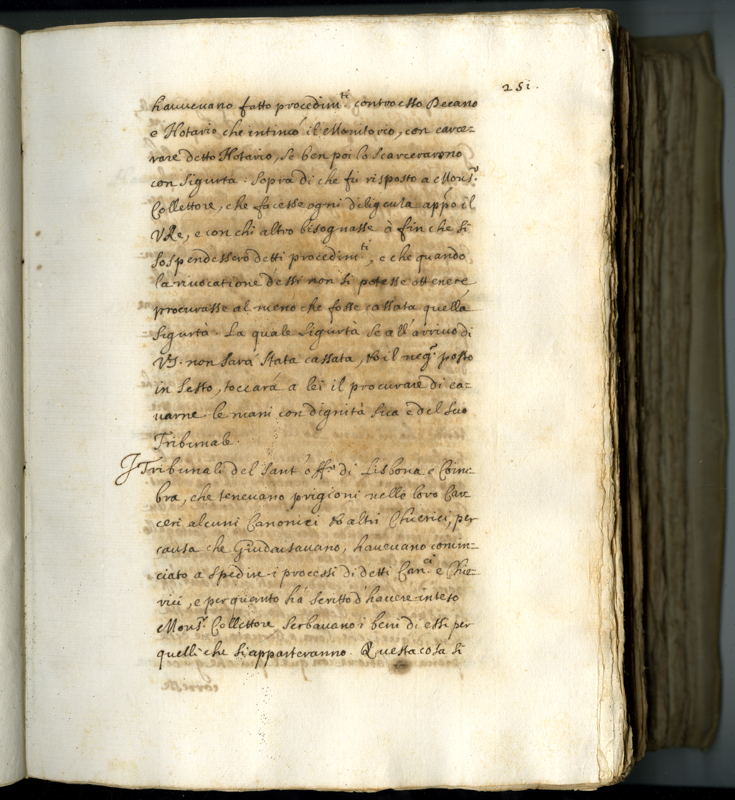 251.
havevano fatto procedim.ti contro esso Decano
e Notario che intimò il Monitorio, con carce-
rare detto Notario, se ben poi lo scarcerarono
con sigurtà. Sopra di che fù risposto a Mons.r
Collettore, che facesse ogni diligenza appo il
VRe, e con chi altro bisognasse à fin che si
sospendessero detti procedim.ti, e che quando
la rivocatione d'essi non si potesse ottenere
procurasse al meno che fosse cassata quella
sigurtà. La quale sigurtà se all'arrivo di
V.S. non sarà stata cassata, et il neg.o posto
in sesto, toccarà a lei il procurare di ca-
varne le mani con dignità sua e del suo
Tribunale.
I Tribunali del Sant'off.o di Lisbona e Coim-
bra, che tenevano prigioni nelle loro Car
ceri alcuni Canonici et altri Chierici, per
causa che Giudaisavano, havevano comin-
ciato a spedire i processi di detti Can.ci e Chie-
rici, e per quanto hà scritto d'havere inteso
Mons.r Collettore serbavano i beni di essi per
quelli che si apparteranno. Questa cosa si